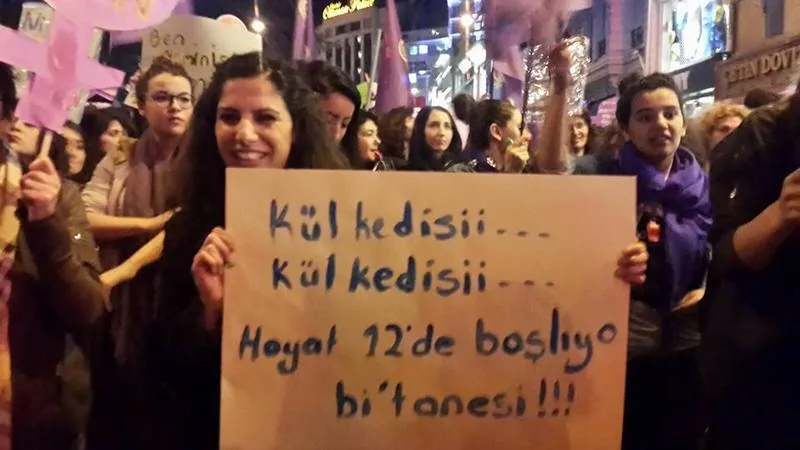 Ben
Kül kedisii...
Kül kedisii...
Hayat 12'de başlıyo
bi'tanesi!!!